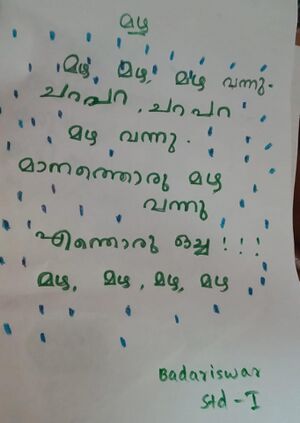 മഴ
മഴ, മഴ, മഴ വന്നു.
ചറപറ, ചറപറ
മഴ വന്നു.
മാനത്തൊരു മഴ
വന്നു
എന്തൊരു ഒച്ച!!!
മഴ, മഴ, മഴ, മഴ
Badariswar
Std - I